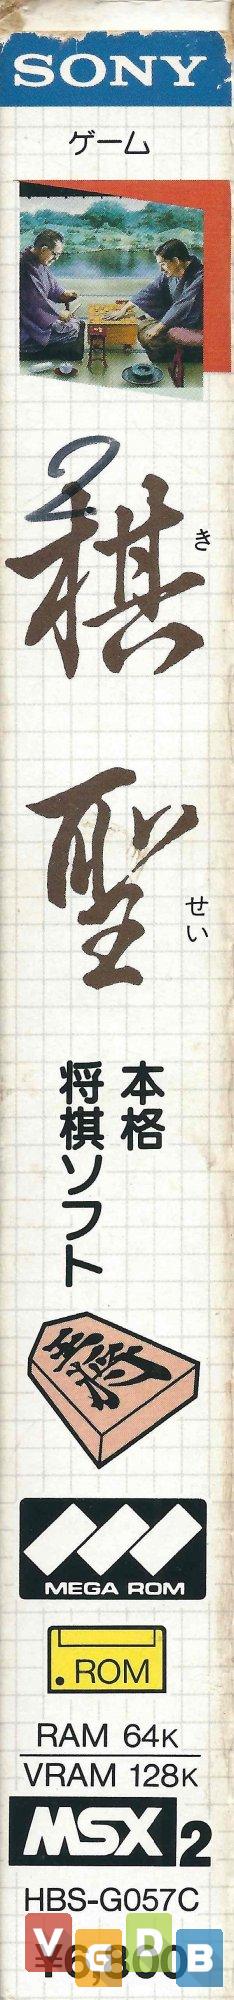 SONY
ゲーム
2
棋聖
きせい
本格
将棋ソフト
王将
MEGA ROM
ROM
RAM 64K
VRAM 128K
MSX2
HBS-G057C
¥6,800
VGDB